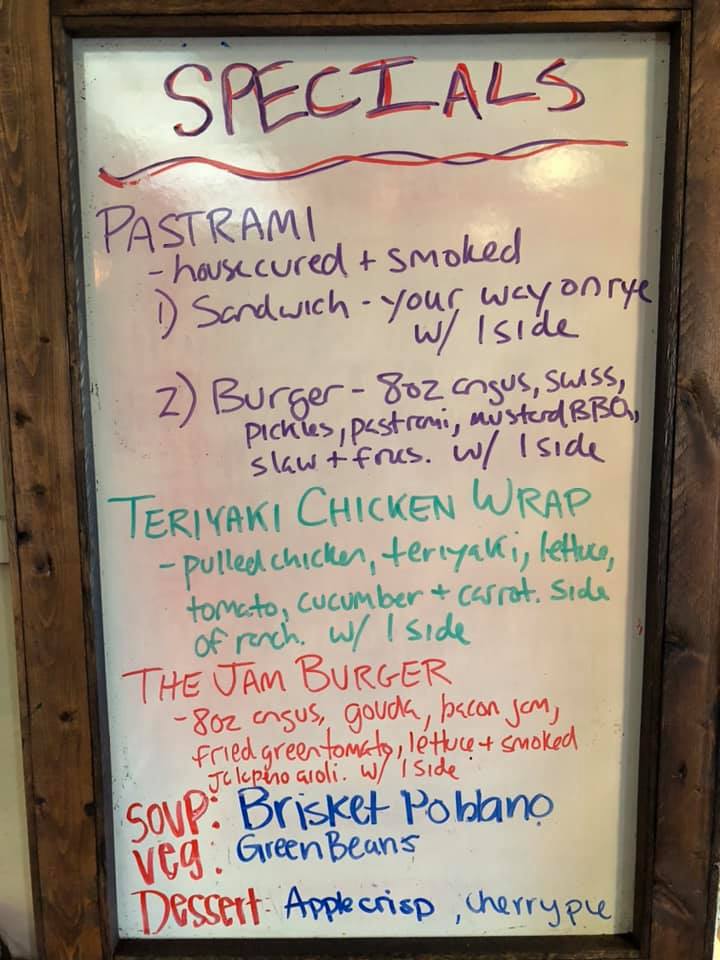 SPECIALS
PASTRAMI
- house cured + smoked
1) Sandwich - your way on rye
w/ 1 side
2) Burger - 8oz angus, swiss,
pickles, pastrami, mustard BBQ,
slaw + fries. w/ 1 side
TERIYAKI CHICKEN WRAP
- pulled chicken, teriyaki, lettuce,
tomato, cucumber + carrot. Side
of ranch. w/ 1 side
THE JAM BURGER
- 8oz angus, gouda, bacon jam,
fried green tomato, lettuce + smoked
Jalapeno aioli. w/ 1 side
SOUP: Brisket Poblano
Veg: Green Beans
Dessert: Apple crisp, cherry pie